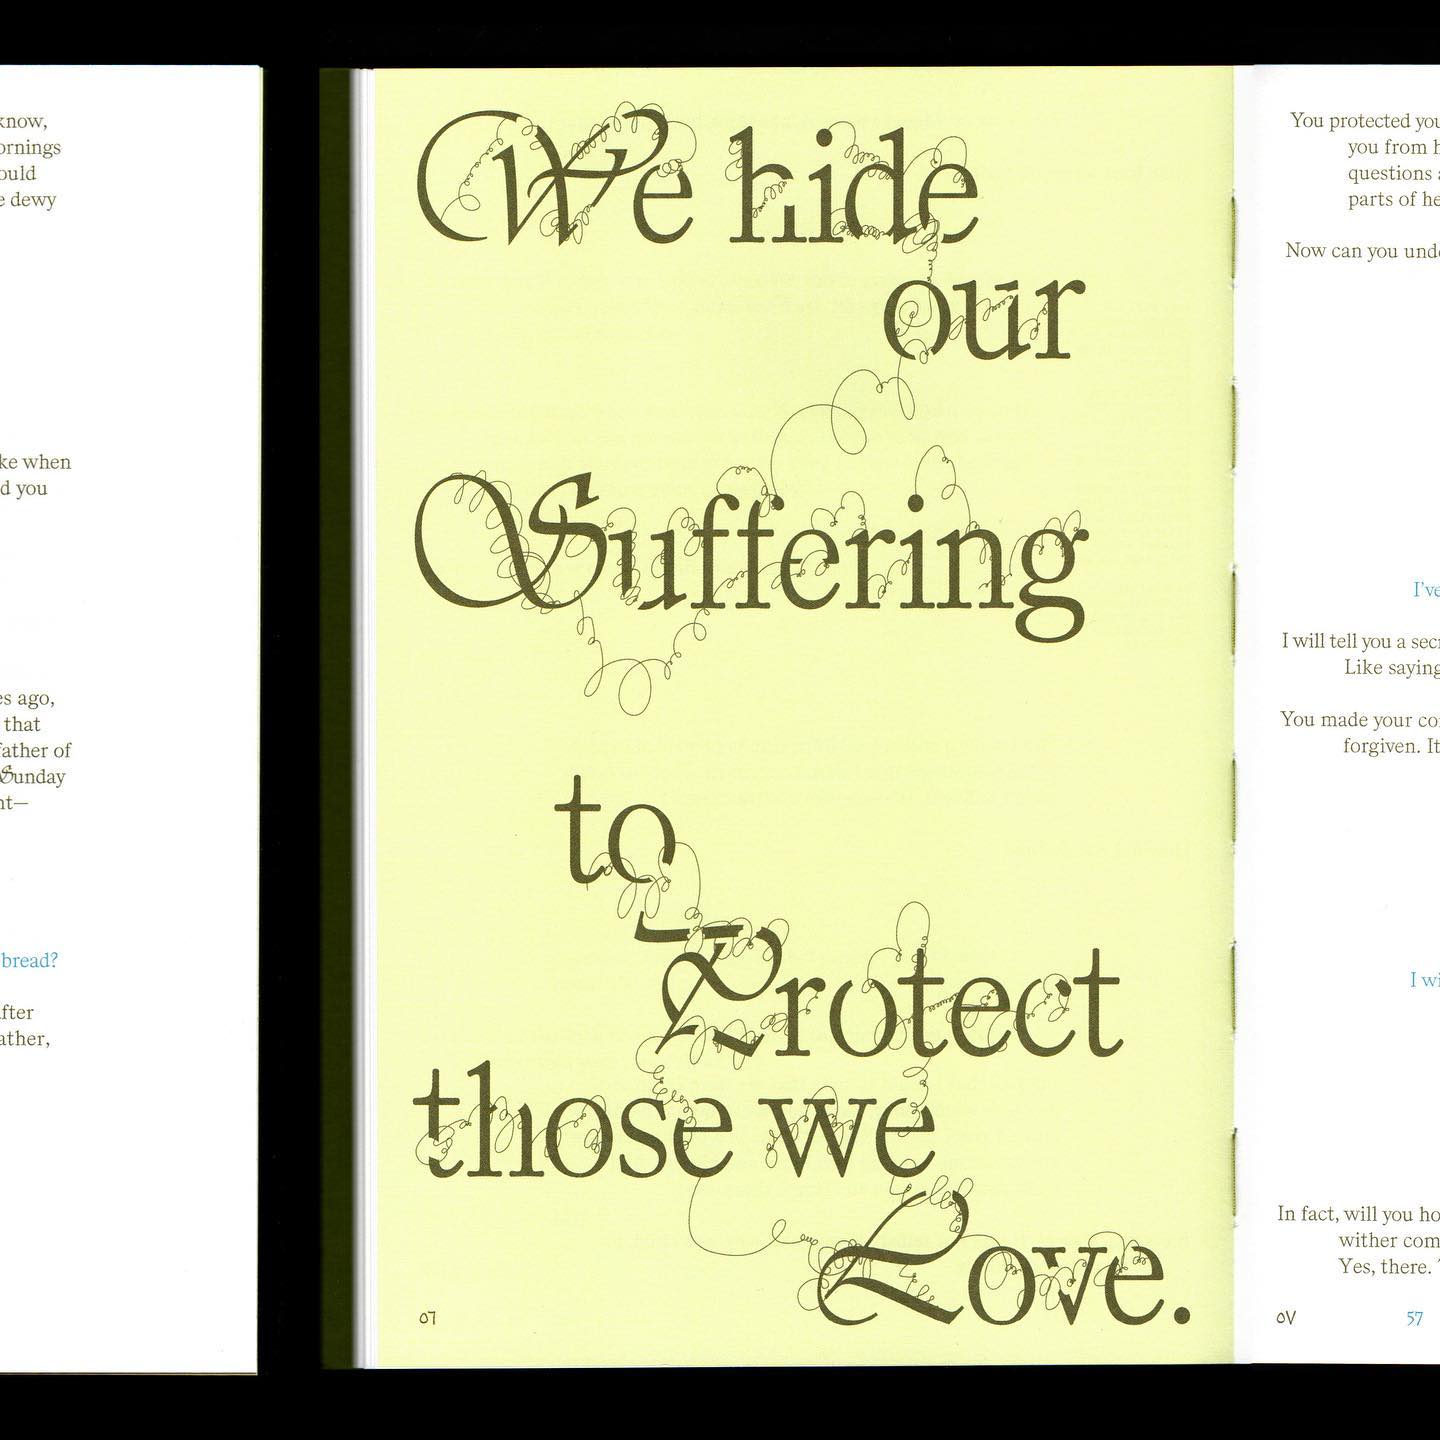 know,
ould
e dewy
ke when
d you
es ago,
that
father of
Sunday
nt—
bread?
after
ather,
We hide
our
Suffering
to
Protect
those we
Love.
07
You protected you
you from h
questions a
parts of he
Now can you unde
I've
I will tell you a secr
Like saying
You made your co
forgiven. It
I wi
In fact, will you ho
wither com
Yes, there.
oV 57